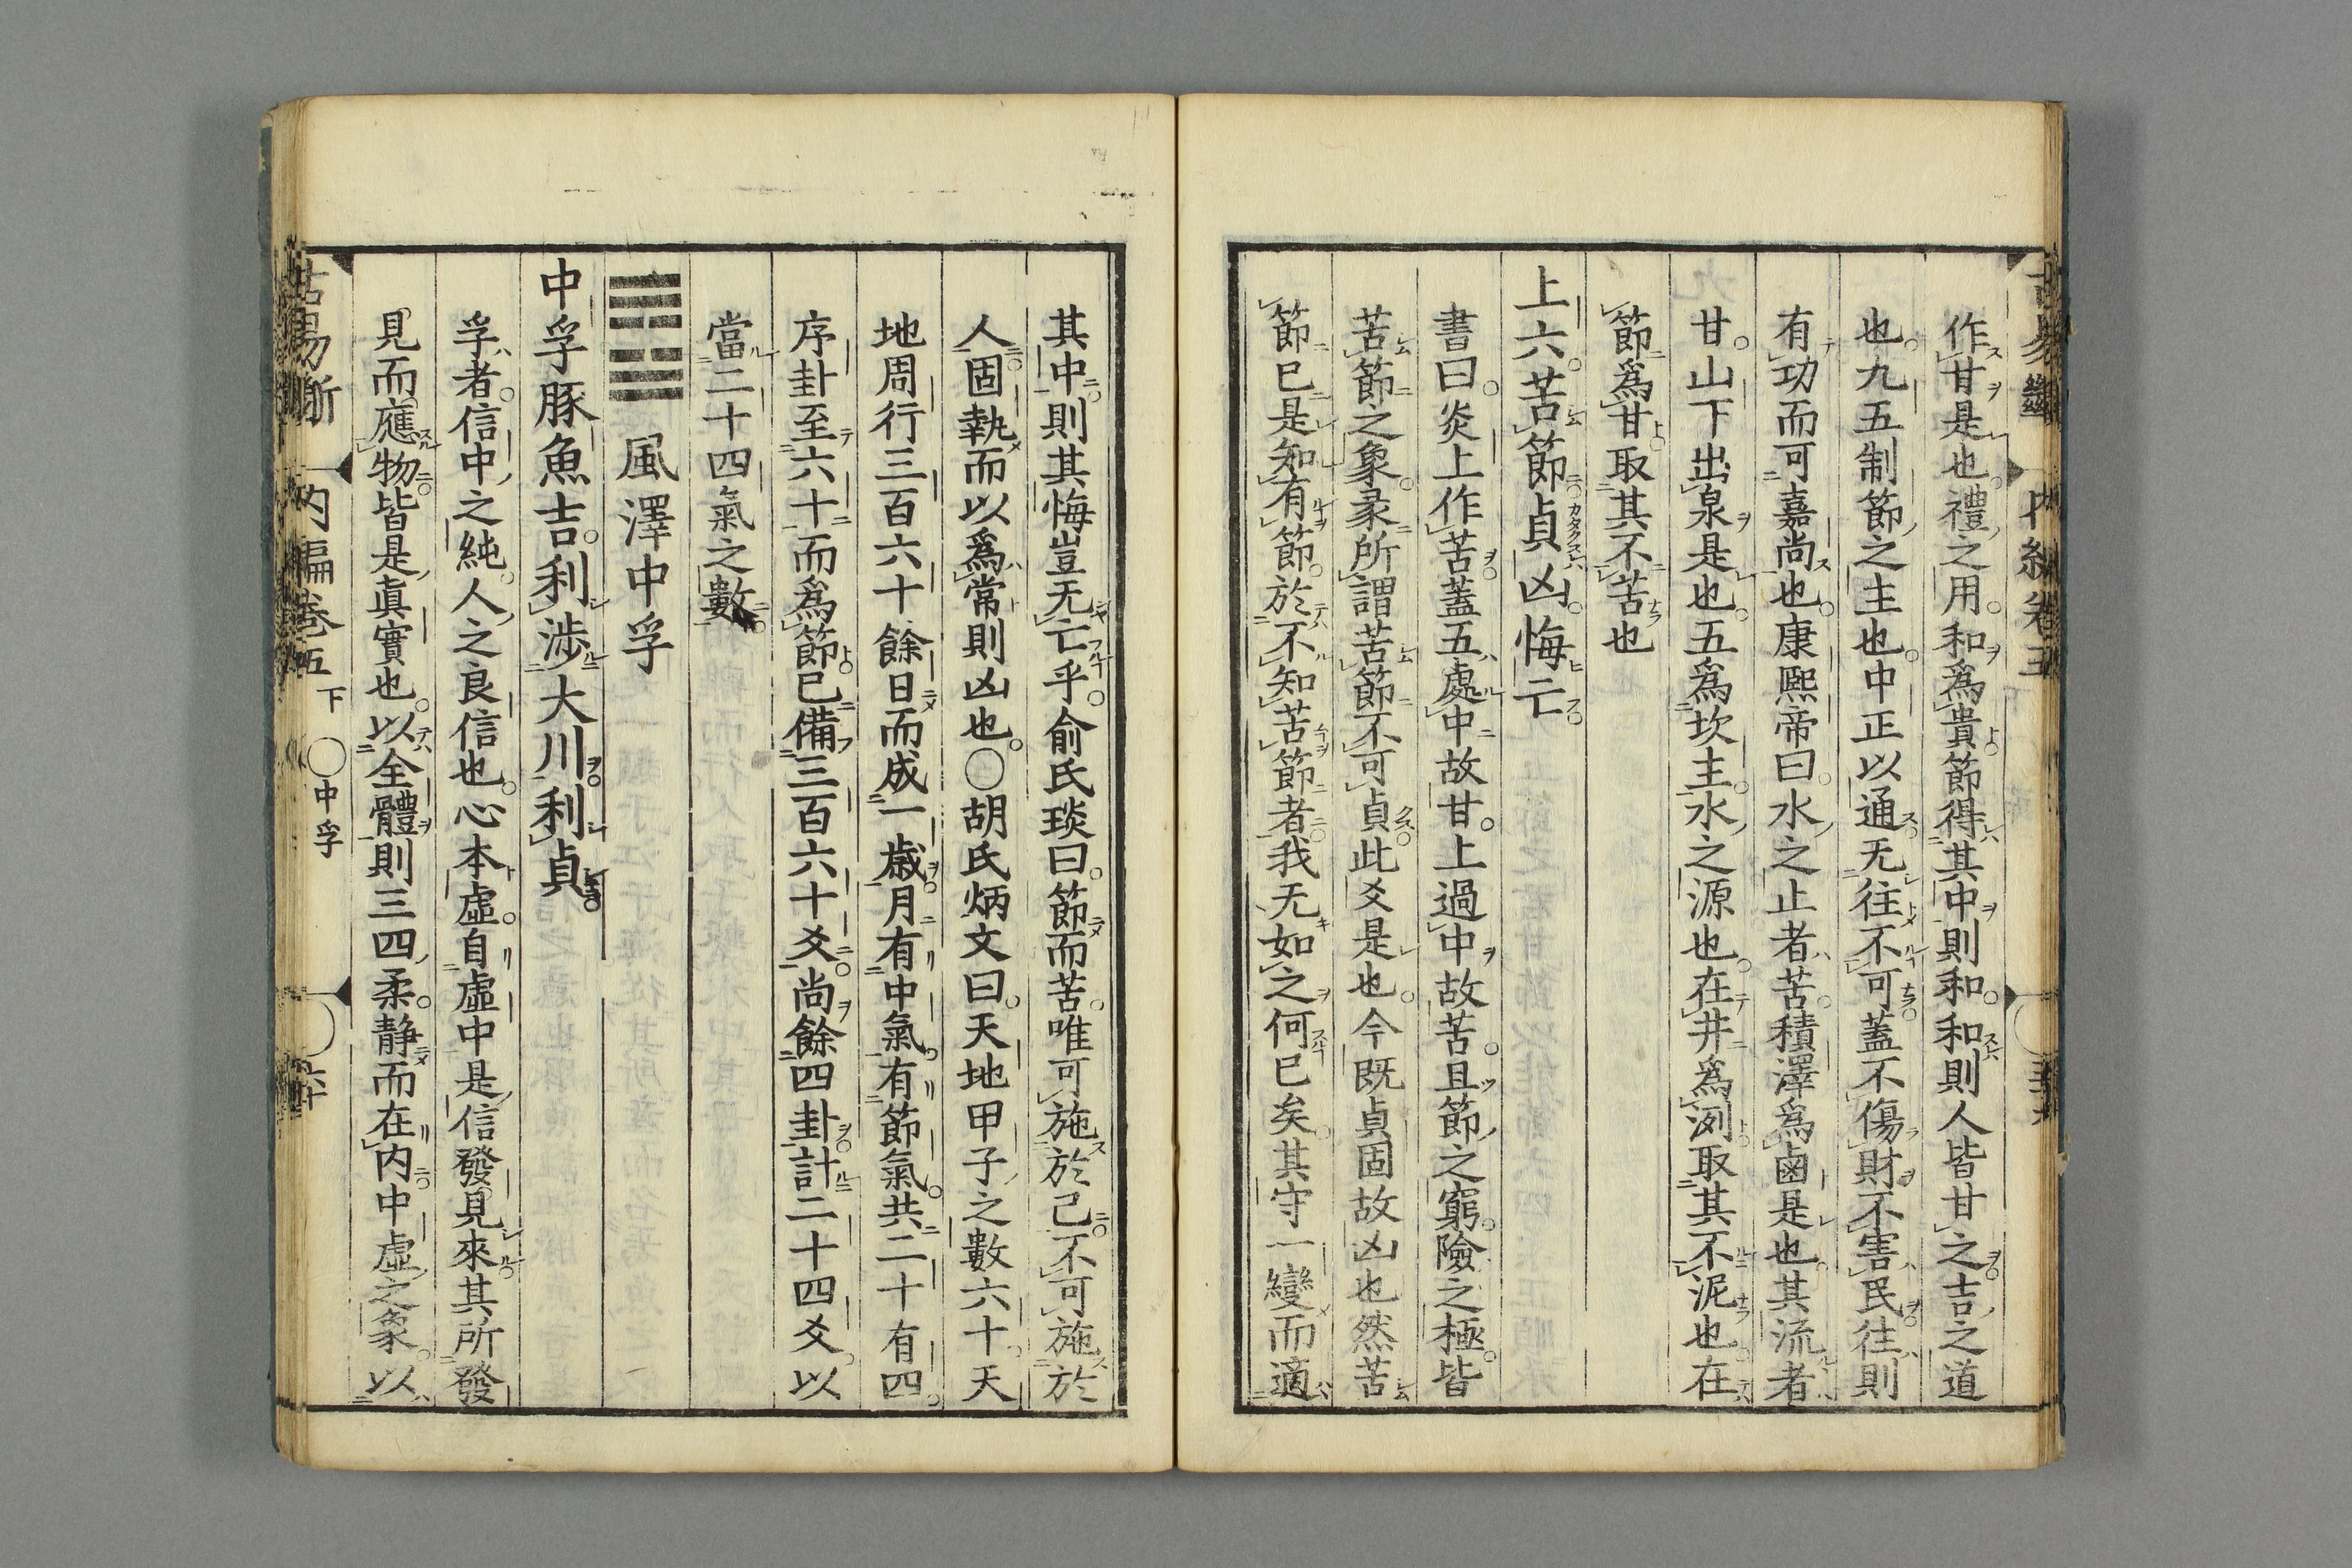 作甘是也禮之用和爲貴節得其中則和和則人皆甘之吉之道
也九五制節之主也中正以通无往不可蓋不傷財不害民往則
有功而可嘉尚也康熙帝曰水之止者苦積澤爲鹵是也其流者
甘山下出泉是也五爲坎主水之源也在井爲洌取其不泥也在
節爲甘取其不苦也
上六苦節貞凶悔亡
書曰炎上作苦蓋五處中故甘上過中故苦且節之窮險之極皆
苦節之象彖所謂苦節不可貞此爻是也今既貞固故凶也然苦
節已是知有節於不知苦節者我无如之何已矣其守一變而適
其中則其悔豈无亡乎俞氏琰曰節而苦唯可施於己不可施於
人固執而以爲常則凶也○胡氏炳文曰天地甲子之數六十天
地周行三百六十餘日而成一歳月有中氣有節氣共二十有四
序卦至六十而爲節已備三百六十爻尚餘四卦計二十四爻以
當二十四氣之數
風澤中孚
中孚豚魚吉利渉大川利貞
孚者信中之純人之良信也心本虛自虛中是信發見來其所發
見而應物皆是眞實也以全體則三四柔静而在内中虛之象以
古易斷 内編卷五下 ○中孚 六十